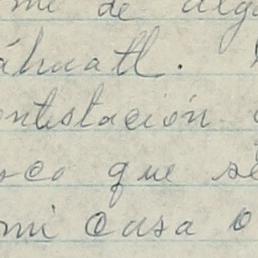 me de alg
áhuatl.
ontestación
sco que se
mi casa o